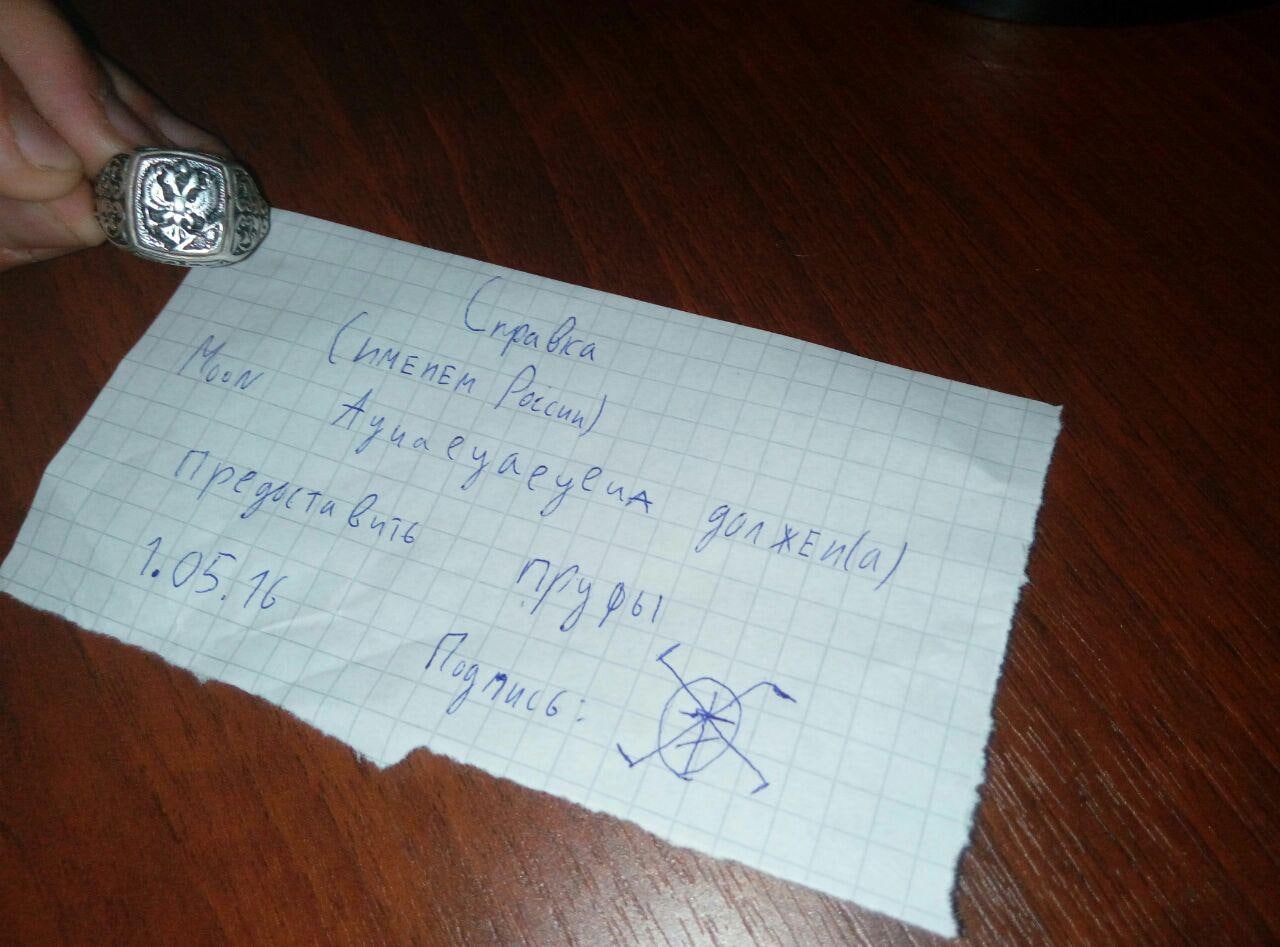 Справка
(именем России)
Moon Ауиаеуаеуеиа должен(а)
предоставить пруфы
1.05.16
Подпись: